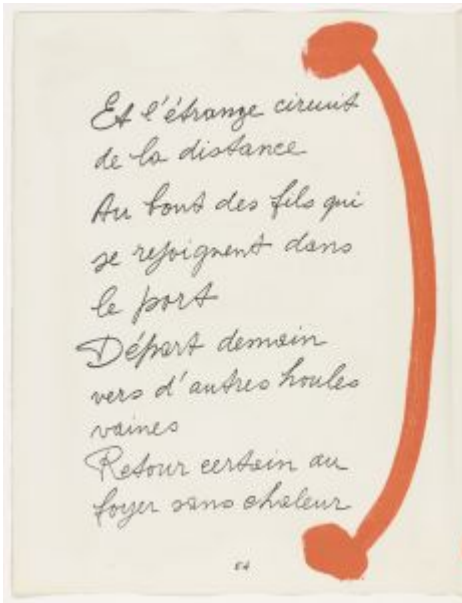 Et l'étrange circuit
de la distance
Au bout des fils qui
se rejoignent dans
le port
Départ demain
vers d'autres houles
vaines
Retour certain au
foyer sans chaleur
54